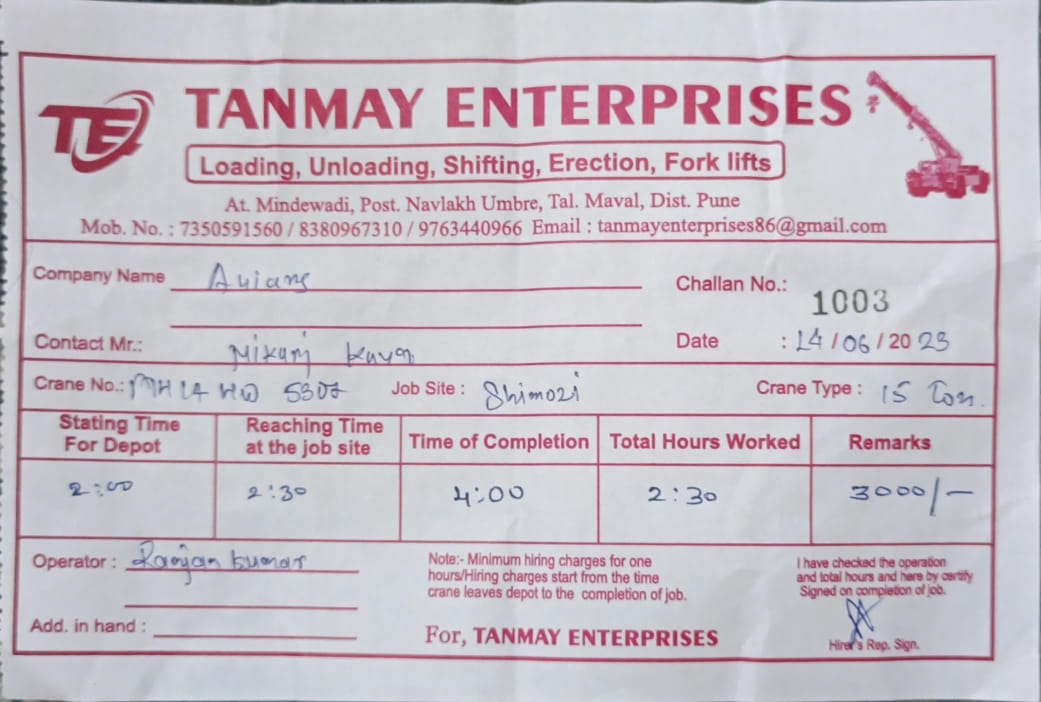 TE
TANMAY ENTERPRISES
Loading, Unloading, Shifting, Erection, Fork lifts
At. Mindewadi, Post. Navlakh Umbre, Tal. Maval, Dist. Pune
Mob. No. : 7350591560 / 8380967310 / 9763440966 Email : tanmayenterprises86@gmail.com
Company Name
Challan No.: 1003
Contact Mr.:
Date : 14 / 06 / 20 23
Crane No.: MH 14 HW Job Site : Crane Type : 15 Ton.
Stating Time For Depot Reaching Time at the job site Time of Completion Total Hours Worked Remarks
2:00 2:30 4:00 2:30 3000/-
Operator : Ranjan kumar
Note:- Minimum hiring charges for one
hours/Hiring charges start from the time
crane leaves depot to the completion of job.
I have checked the operation
and total hours and here by certify
Signed on completion of job.
Add. in hand :
For, TANMAY ENTERPRISES
Hirer's Rep. Sign.